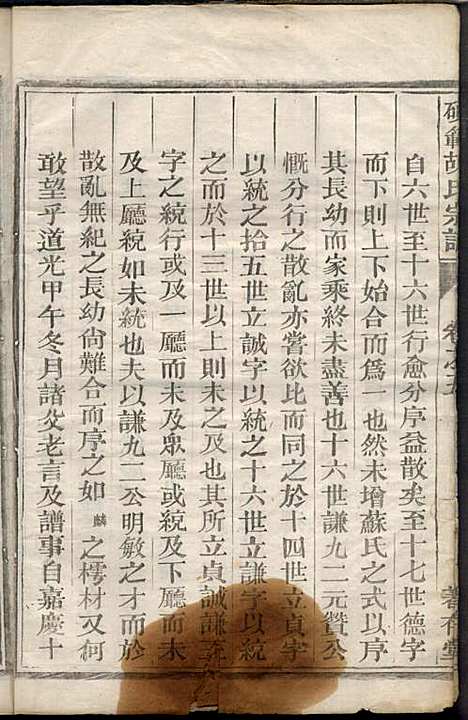 胡氏宗譜
善存堂
自六世至十六世行愈分序益散矣至十七世德字
而下則上下始合而爲一也然未增蘇氏之式以序
其長幼而家乘終未盡善也十六世謙九二元贊公
慨分行之散亂亦嘗欲比而同之於十四世立貞字
以統之拾五世立誠字以統之十六世立謙字以統
之而於十三世以上則未之及也其所立貞誠謙
字之統行或及一廳而未及眾廳或統及下廳而未
及上廳統如未統也夫以謙九二公明敏之才而於
散亂無紀之長幼尙難合而序之如麟之樗材又何
敢望乎道光甲午冬月諸父老言及譜事自嘉慶十